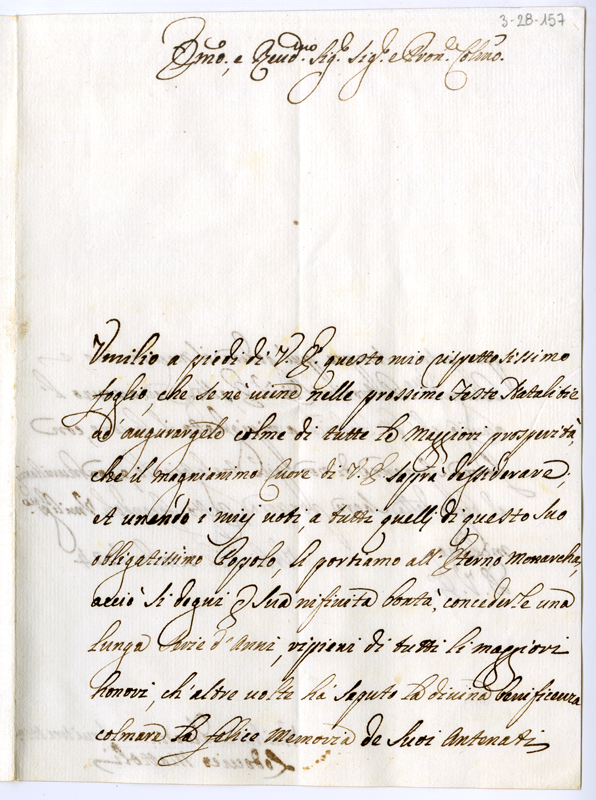 3-28-157
Emo, e Revd.mo Sig.r Sig.r e Pron.e Colmo.
Vmilio a piedi di V. E. questo mio rispettosissimo
foglio, che se ne viene nelle prossime Feste Natalitie
ad augurargele colme di tutte le Maggiori prosperità,
che il magnianimo Cuore di V. E. sapprà dessiderare,
et unendo i miej voti a tutti quellj di questo Suo
obligatissimo Popolo, li portiamo all' Eterno Monarcha,
acciò si degni p Sua nifinita bbntà, concederle una
lunga Serie d'Anni, rippieni di tutti li maggiori
honori, ch'altre volte hà saputo la divina benificenza
colmare la felice Memoria de Suoi Antenati,